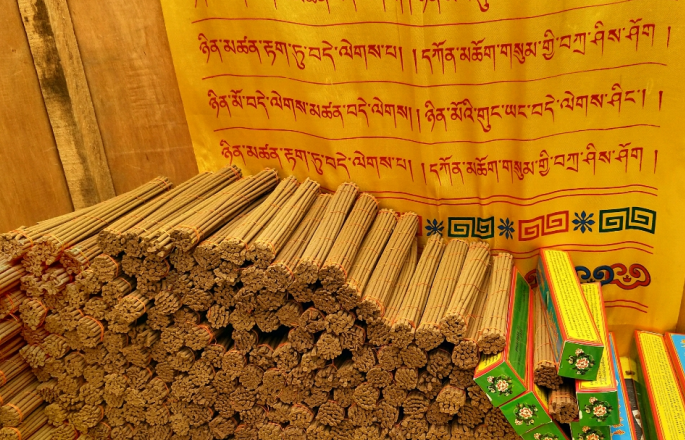 ཉིན་མཚན་རྟག་ཏུ་བདེ་ལེགས་པ། །དཀོན་མཆོག་གསུམ་གྱི་བཀྲ་ཤིས་ཤོག །
ཉིན་མོ་བདེ་ལེགས་མཚན་བདེ་ལེགས། །ཉིན་མོའི་གུང་ཡང་བདེ་ལེགས་ཤིང་། །
ཉིན་མཚན་རྟག་ཏུ་བདེ་ལེགས་པ། །དཀོན་མཆོག་གསུམ་གྱི་བཀྲ་ཤིས་ཤོག །